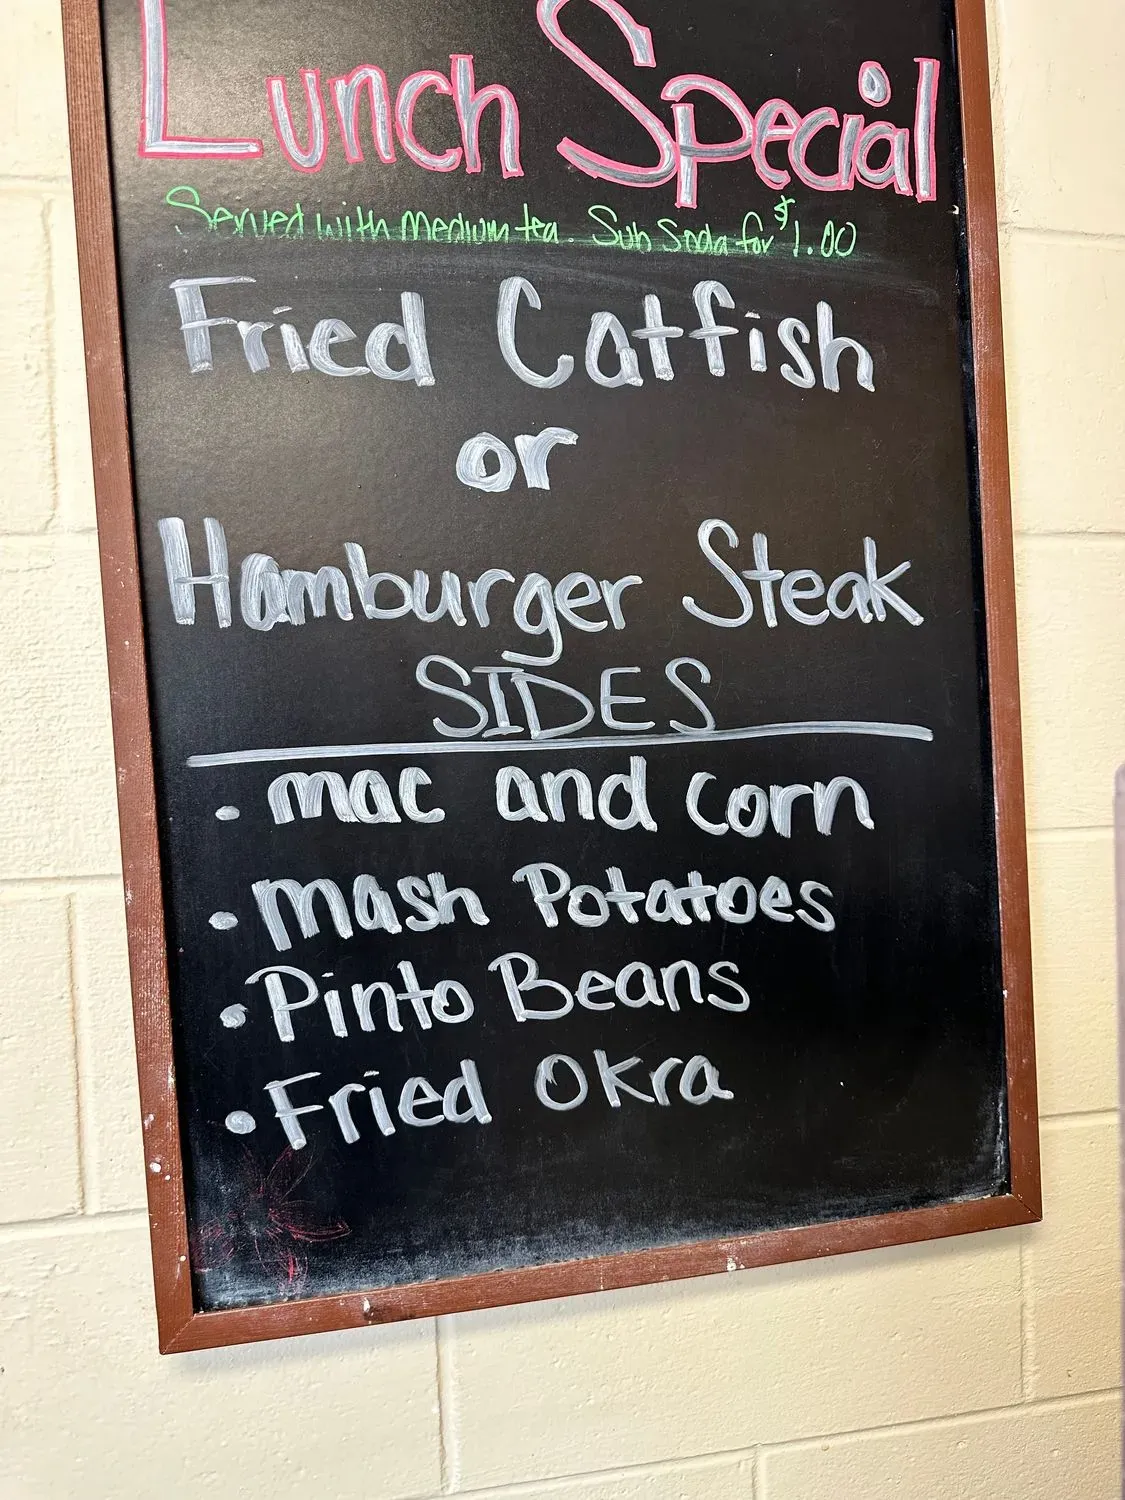 Lunch Special
Served with medium tea. Sub Soda for $1.00
Fried Catfish
or
Hamburger Steak
SIDES
• mac and corn
• mash Potatoes
• Pinto Beans
• Fried Okra